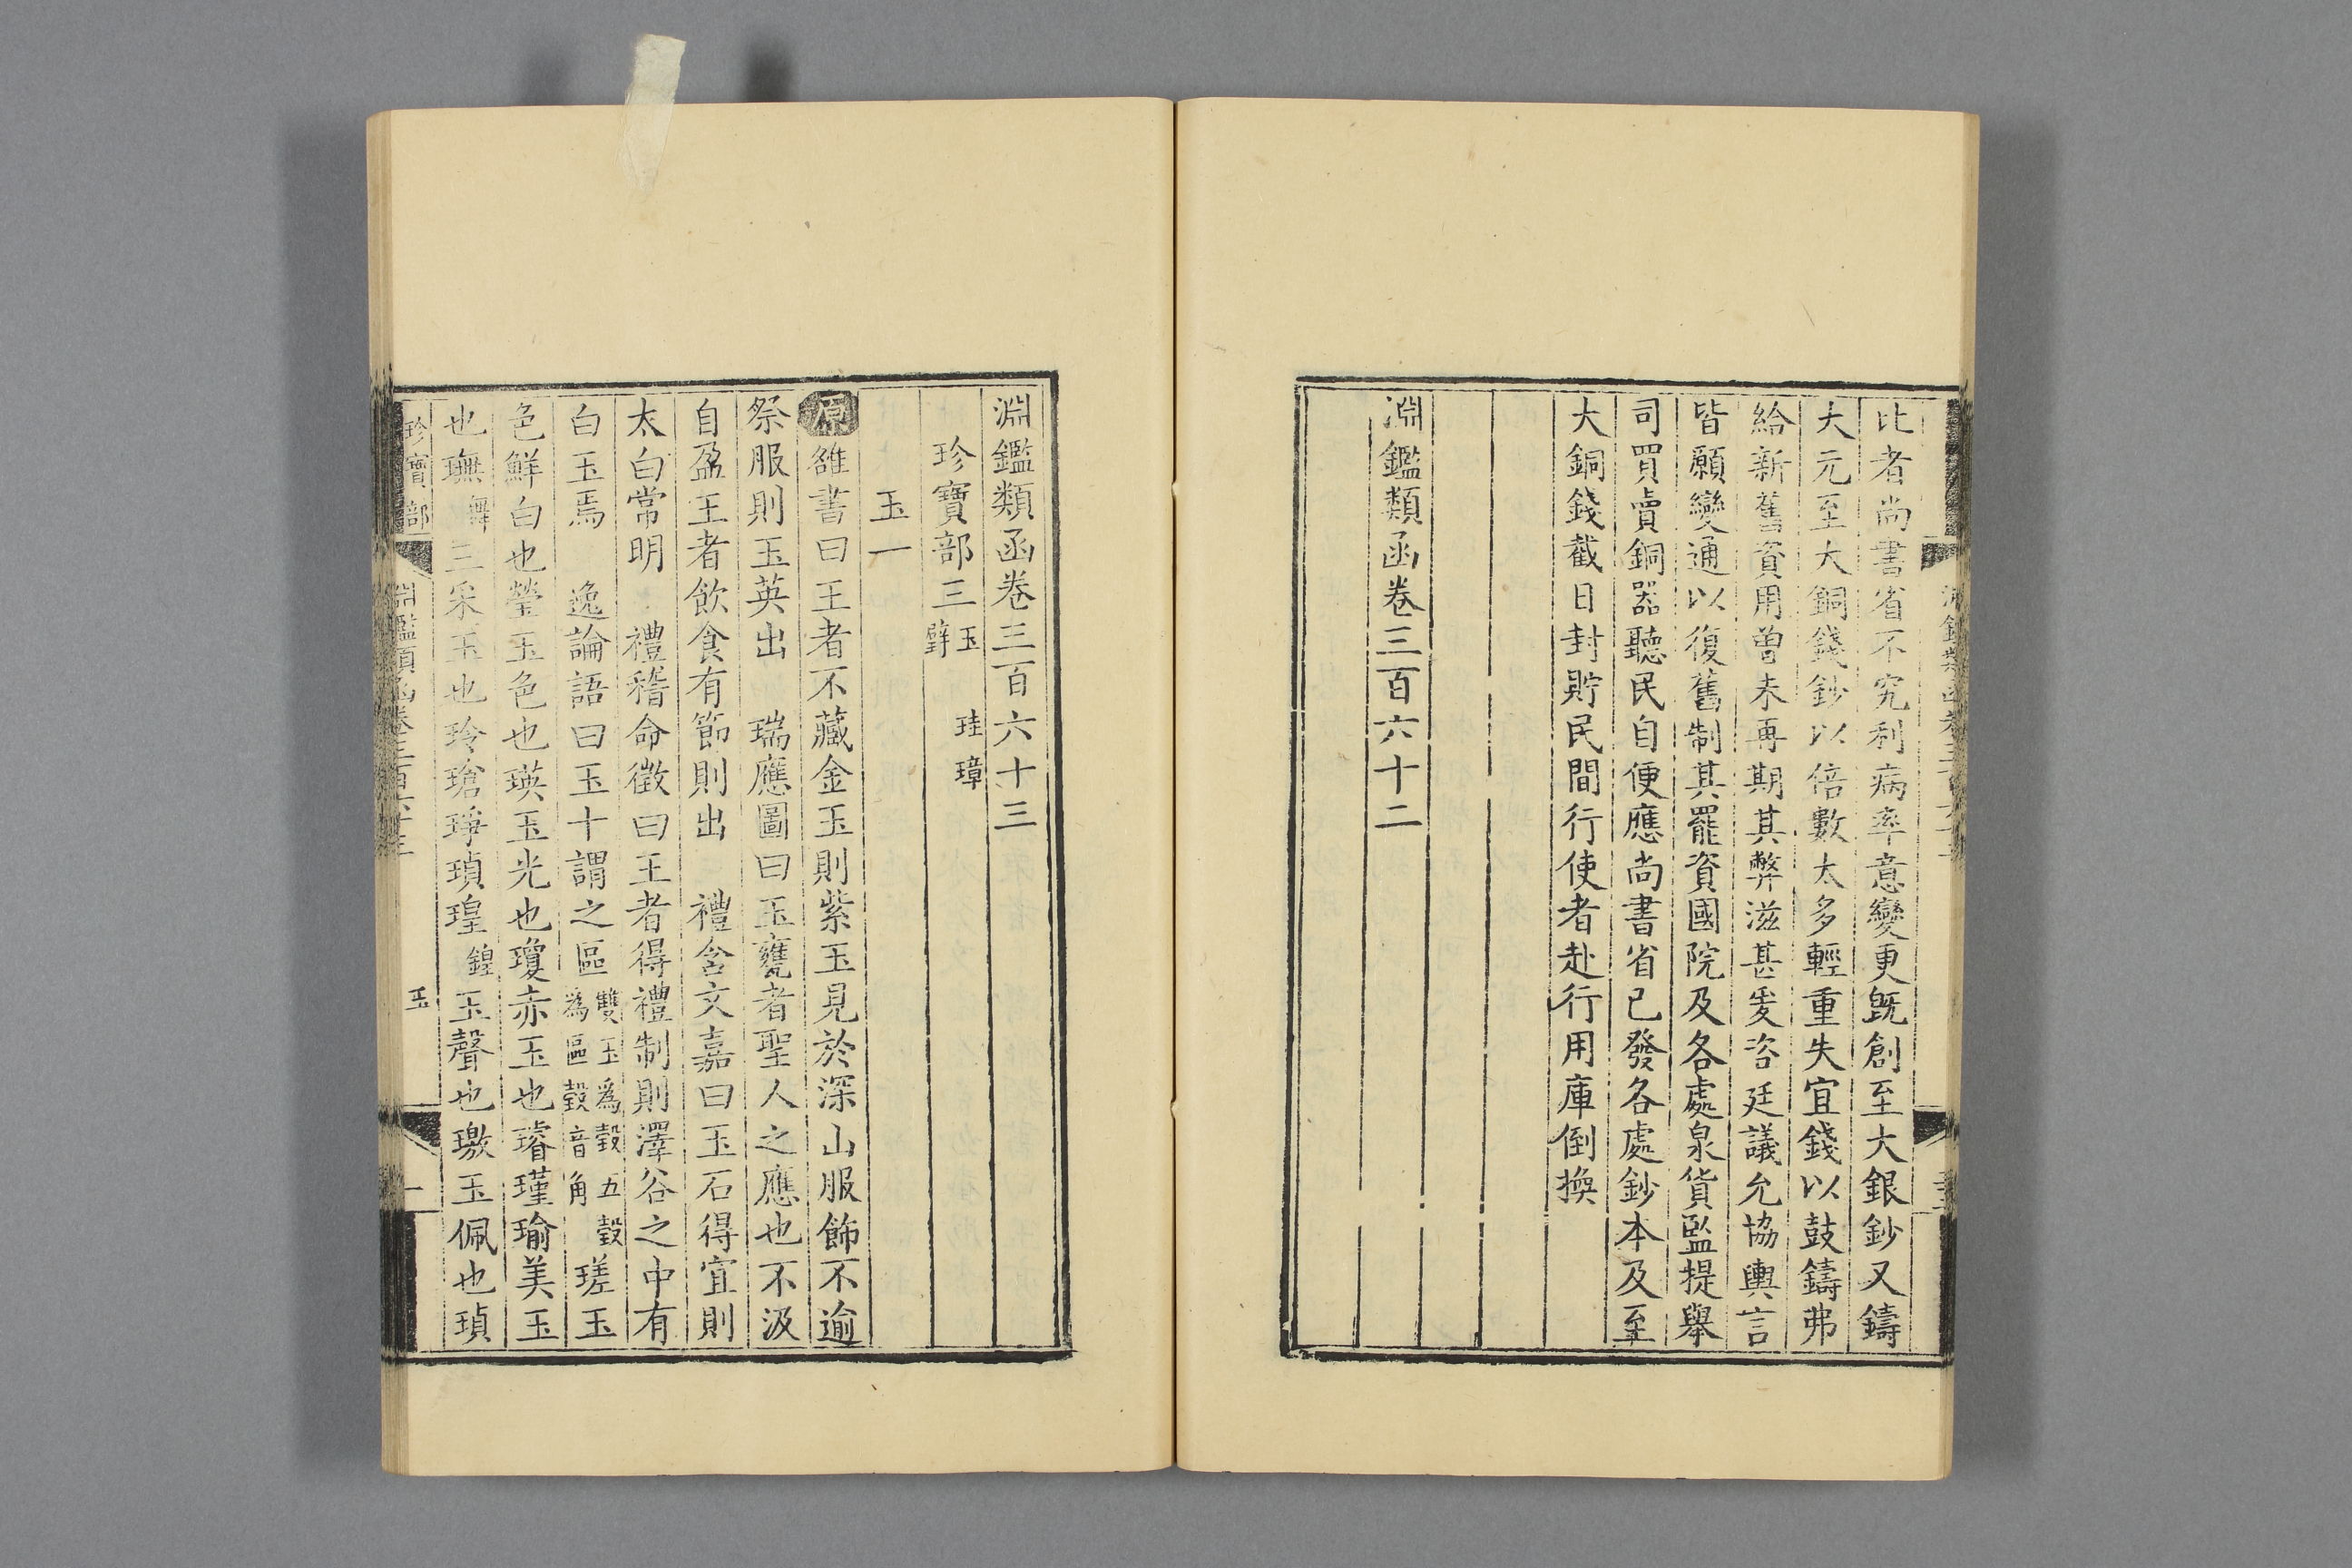 比者尚書省不究利病率意變更既創至大銀鈔又鑄
大元至大銅錢鈔以倍數太多輕重失宜錢以鼓鑄弗
給新舊資用曾未再期其弊滋甚爰咨廷議允協輿言
皆願變通以復舊制其罷資國院及各處泉貨監提舉
司買賣銅器聽民自便應尚書省已發各處鈔本及至
大銅錢截日封貯民間行使者赴行用庫倒換
淵鑑類函卷三百六十二
淵鑑類函卷三百六十三
珍寶部三 玉 珪 璋 璧
玉一
原 雒書曰王者不藏金玉則紫玉見於深山服飾不逾
祭服則玉英出 瑞應圖曰玉甕者聖人之應也不汲
自盈王者飲食有節則出 禮含文嘉曰玉石得宜則
太白常明 禮稽命徵曰王者得禮制則澤谷之中有
白玉焉 逸論語曰玉十謂之區 雙玉為瑴五瑴為區瑴音角 瑳玉
色鮮白也瑩玉色也瑛玉光也瓊赤玉也璿瑾瑜美玉
也璑 舞 三采玉也玲瑲琤瑣瑝 鍠 玉聲也璬玉佩也瑱
珍寶部 淵鑑類函卷三百六十三 玉 一